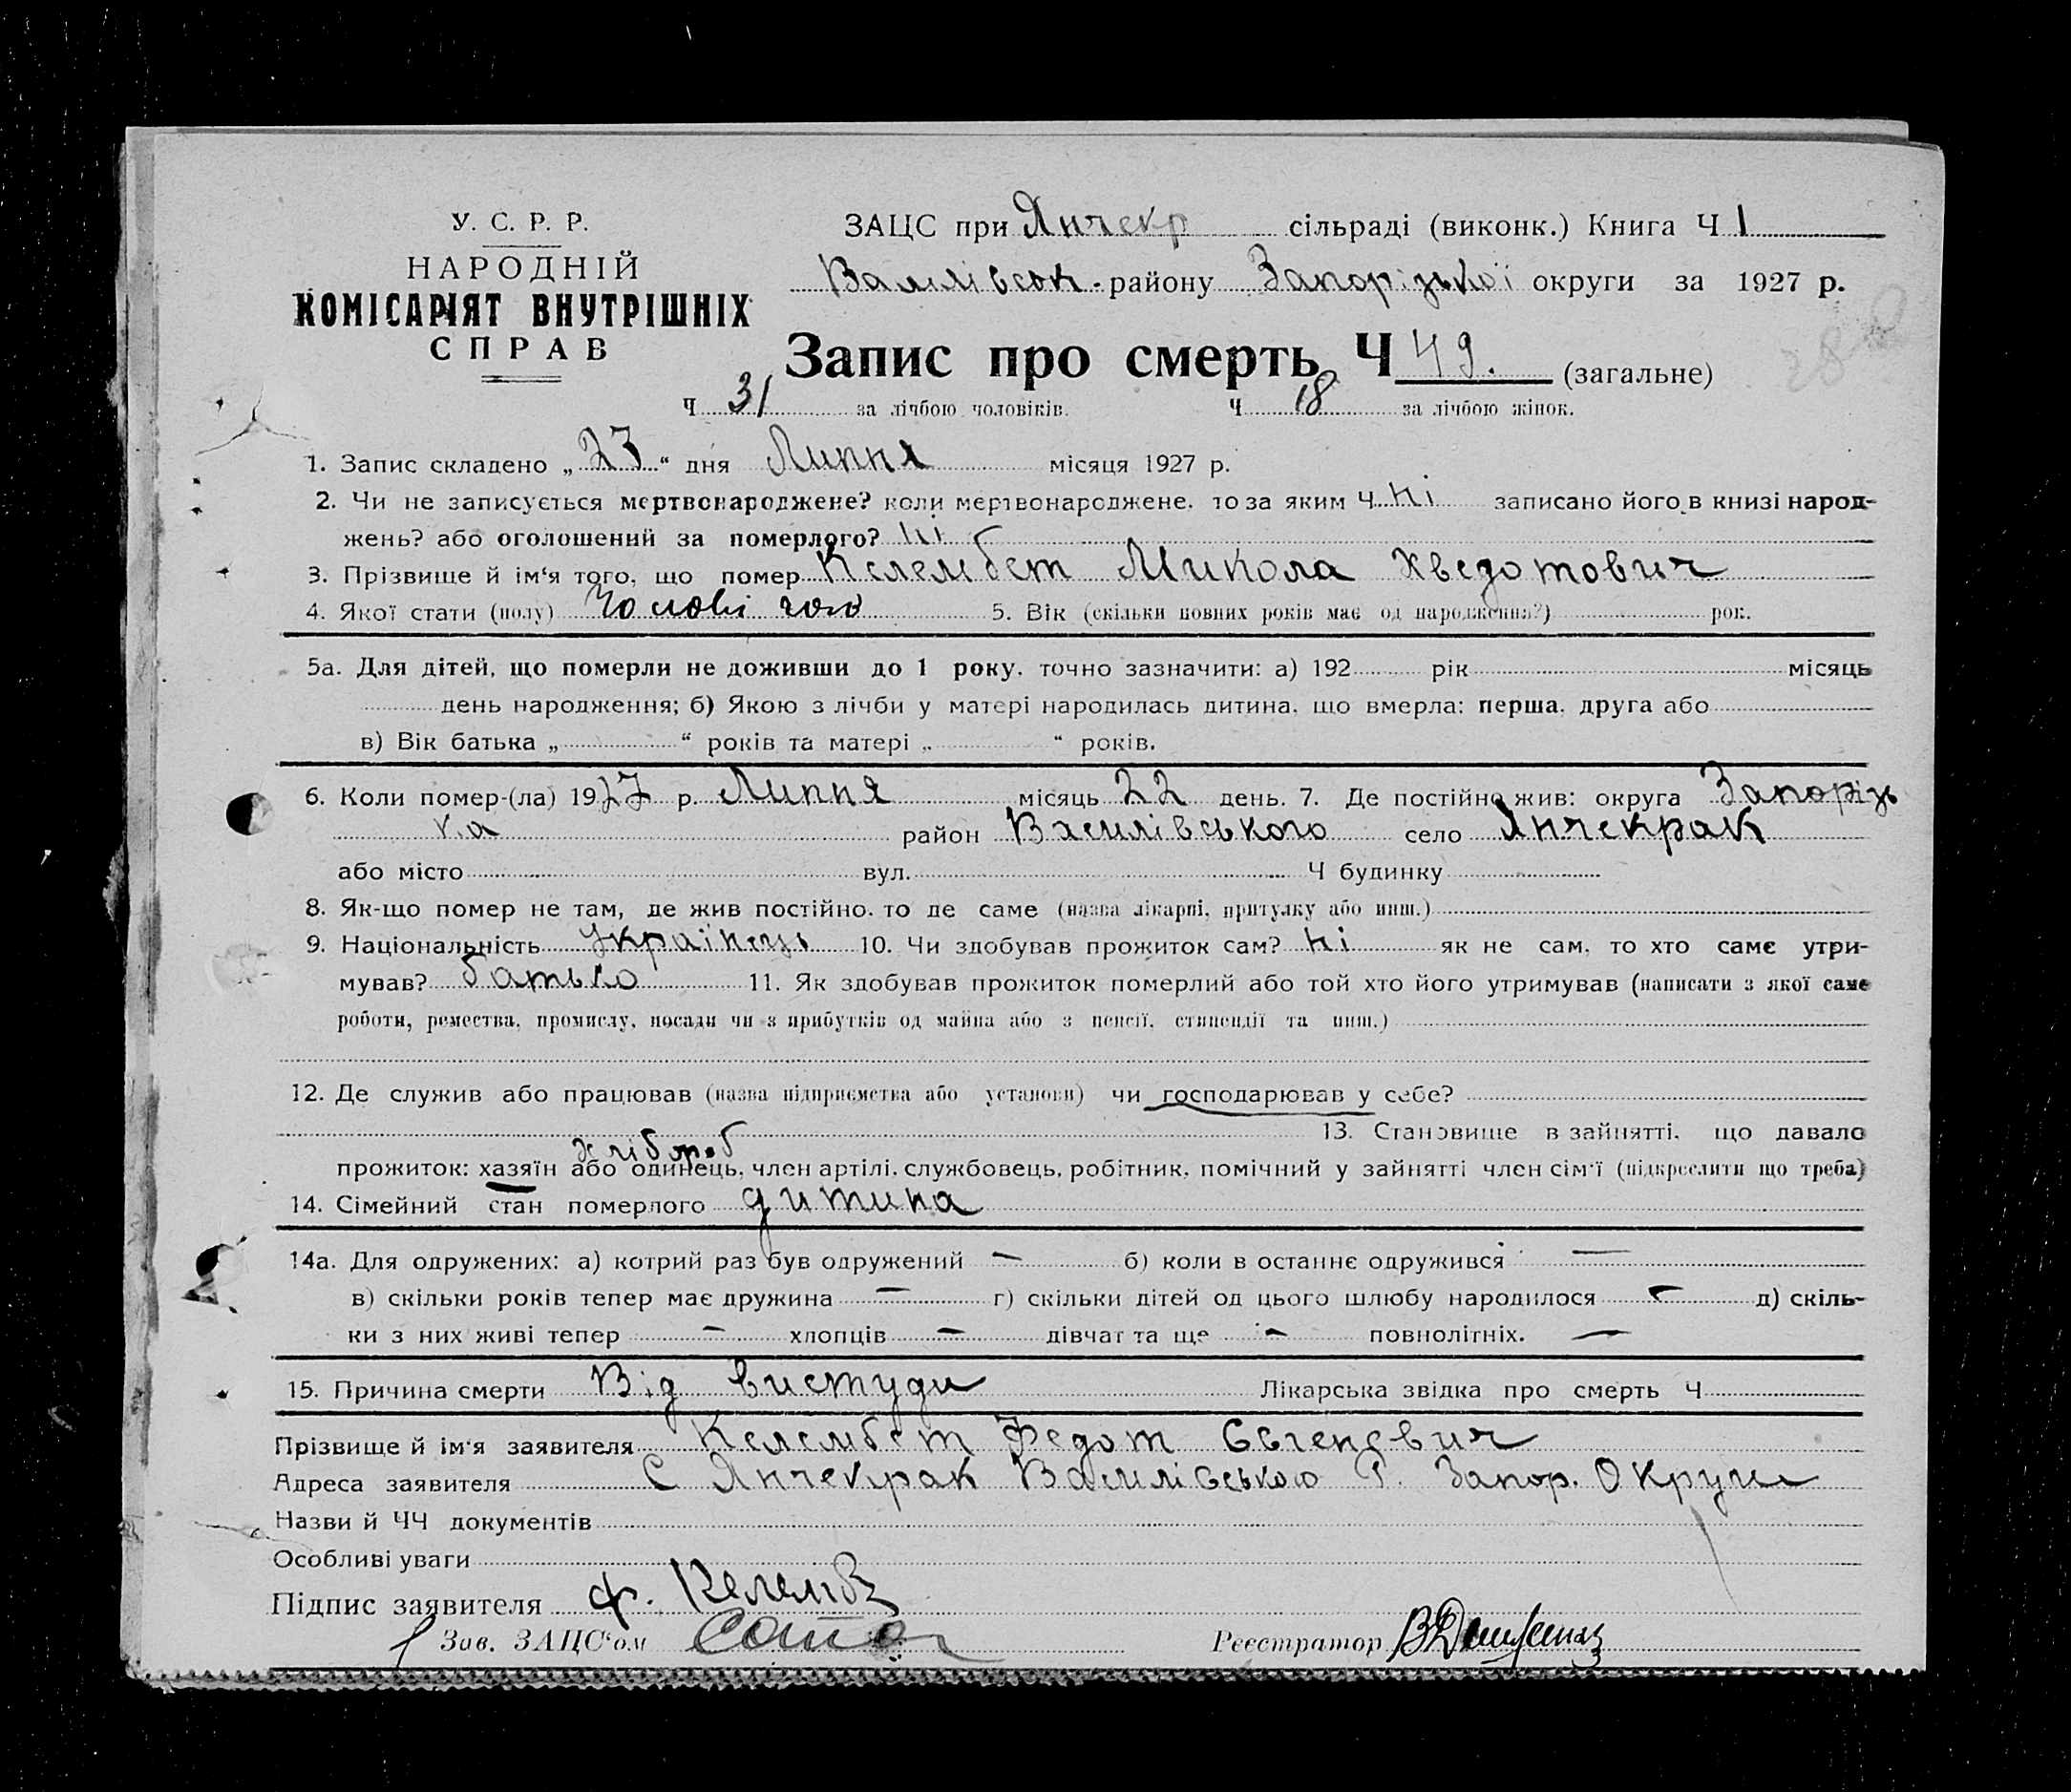 У. С. Р. Р.
НАРОДНІЙ
КОМІСАРІЯТ ВНУТРІШНІХ
СПРАВ
ЗАЦС при Янчекр сільраді (виконк.) Книга Ч 1
Василівськ. району Запорізької округи за 1927 р.
Запис про смерть Ч 49. (загальне)
Ч 31 за лічбою чоловіків. Ч 18 за лічбою жінок.
1. Запис складено „23“ дня Липня місяця 1927 р.
2. Чи не записується мертвонароджене? коли мертвонароджене, то за яким Ч ні записано його в книзі народ-
жень? або оголошений за померлого? ні
3. Прізвище й ім‘я того, що помер Келембет Микола Хведотович
4. Якої стати (полу) Чоловічого 5. Вік (скільки повних років має од народження?) рок.
5а. Для дітей, що померли не доживши до 1 року, точно зазначити: а) 192 рік місяць
день народження; б) Якою з лічби у матері народилась дитина, що вмерла: перша, друга або
в) Вік батька „ “ років та матері „ “ років.
6. Коли помер-(ла) 1927 р. Липня місяць 22 день. 7. Де постійно жив: округа Запорізь
ка район Василівського село Янчекрак
або місто вул. Ч будинку
8. Як-що помер не там, де жив постійно, то де саме (назва лікарні, притулку або инш.)
9. Національність Українець 10. Чи здобував прожиток сам? ні як не сам, то хто саме утри-
мував? батько 11. Як здобував прожиток померлий або той хто його утримував (написати з якої саме
роботи, ремества, промислу, посади чи з прибутків од майна або з пенсії, стипендії та инш.)
12. Де служив або працював (назва підприємства або установи) чи господарював у себе?
13. Становище в зайнятті, що давало
хлібороб
прожиток: хазяїн або одинець, член артілі, службовець, робітник, помічний у зайнятті член сім‘ї (підкреслити що треба)
14. Сімейний стан померлого дитина
14а. Для одружених: а) котрий раз був одружений — б) коли в останнє одружився —
в) скільки років тепер має дружина — г) скільки дітей од цього шлюбу народилося — д) скіль-
ки з них живі тепер — хлопців — дівчат та ще — повнолітніх. —
15. Причина смерти Від вистуди Лікарська звідка про смерть Ч
Прізвище й ім‘я заявителя Келембет Федот Євгенович
Адреса заявителя С Янчекрак Василівського Р. Запор. Округи
Назви й ЧЧ документів
Особливі уваги
Підпис заявителя Ф. Келемб
Зав. ЗАЦС‘ом
Реєстратор